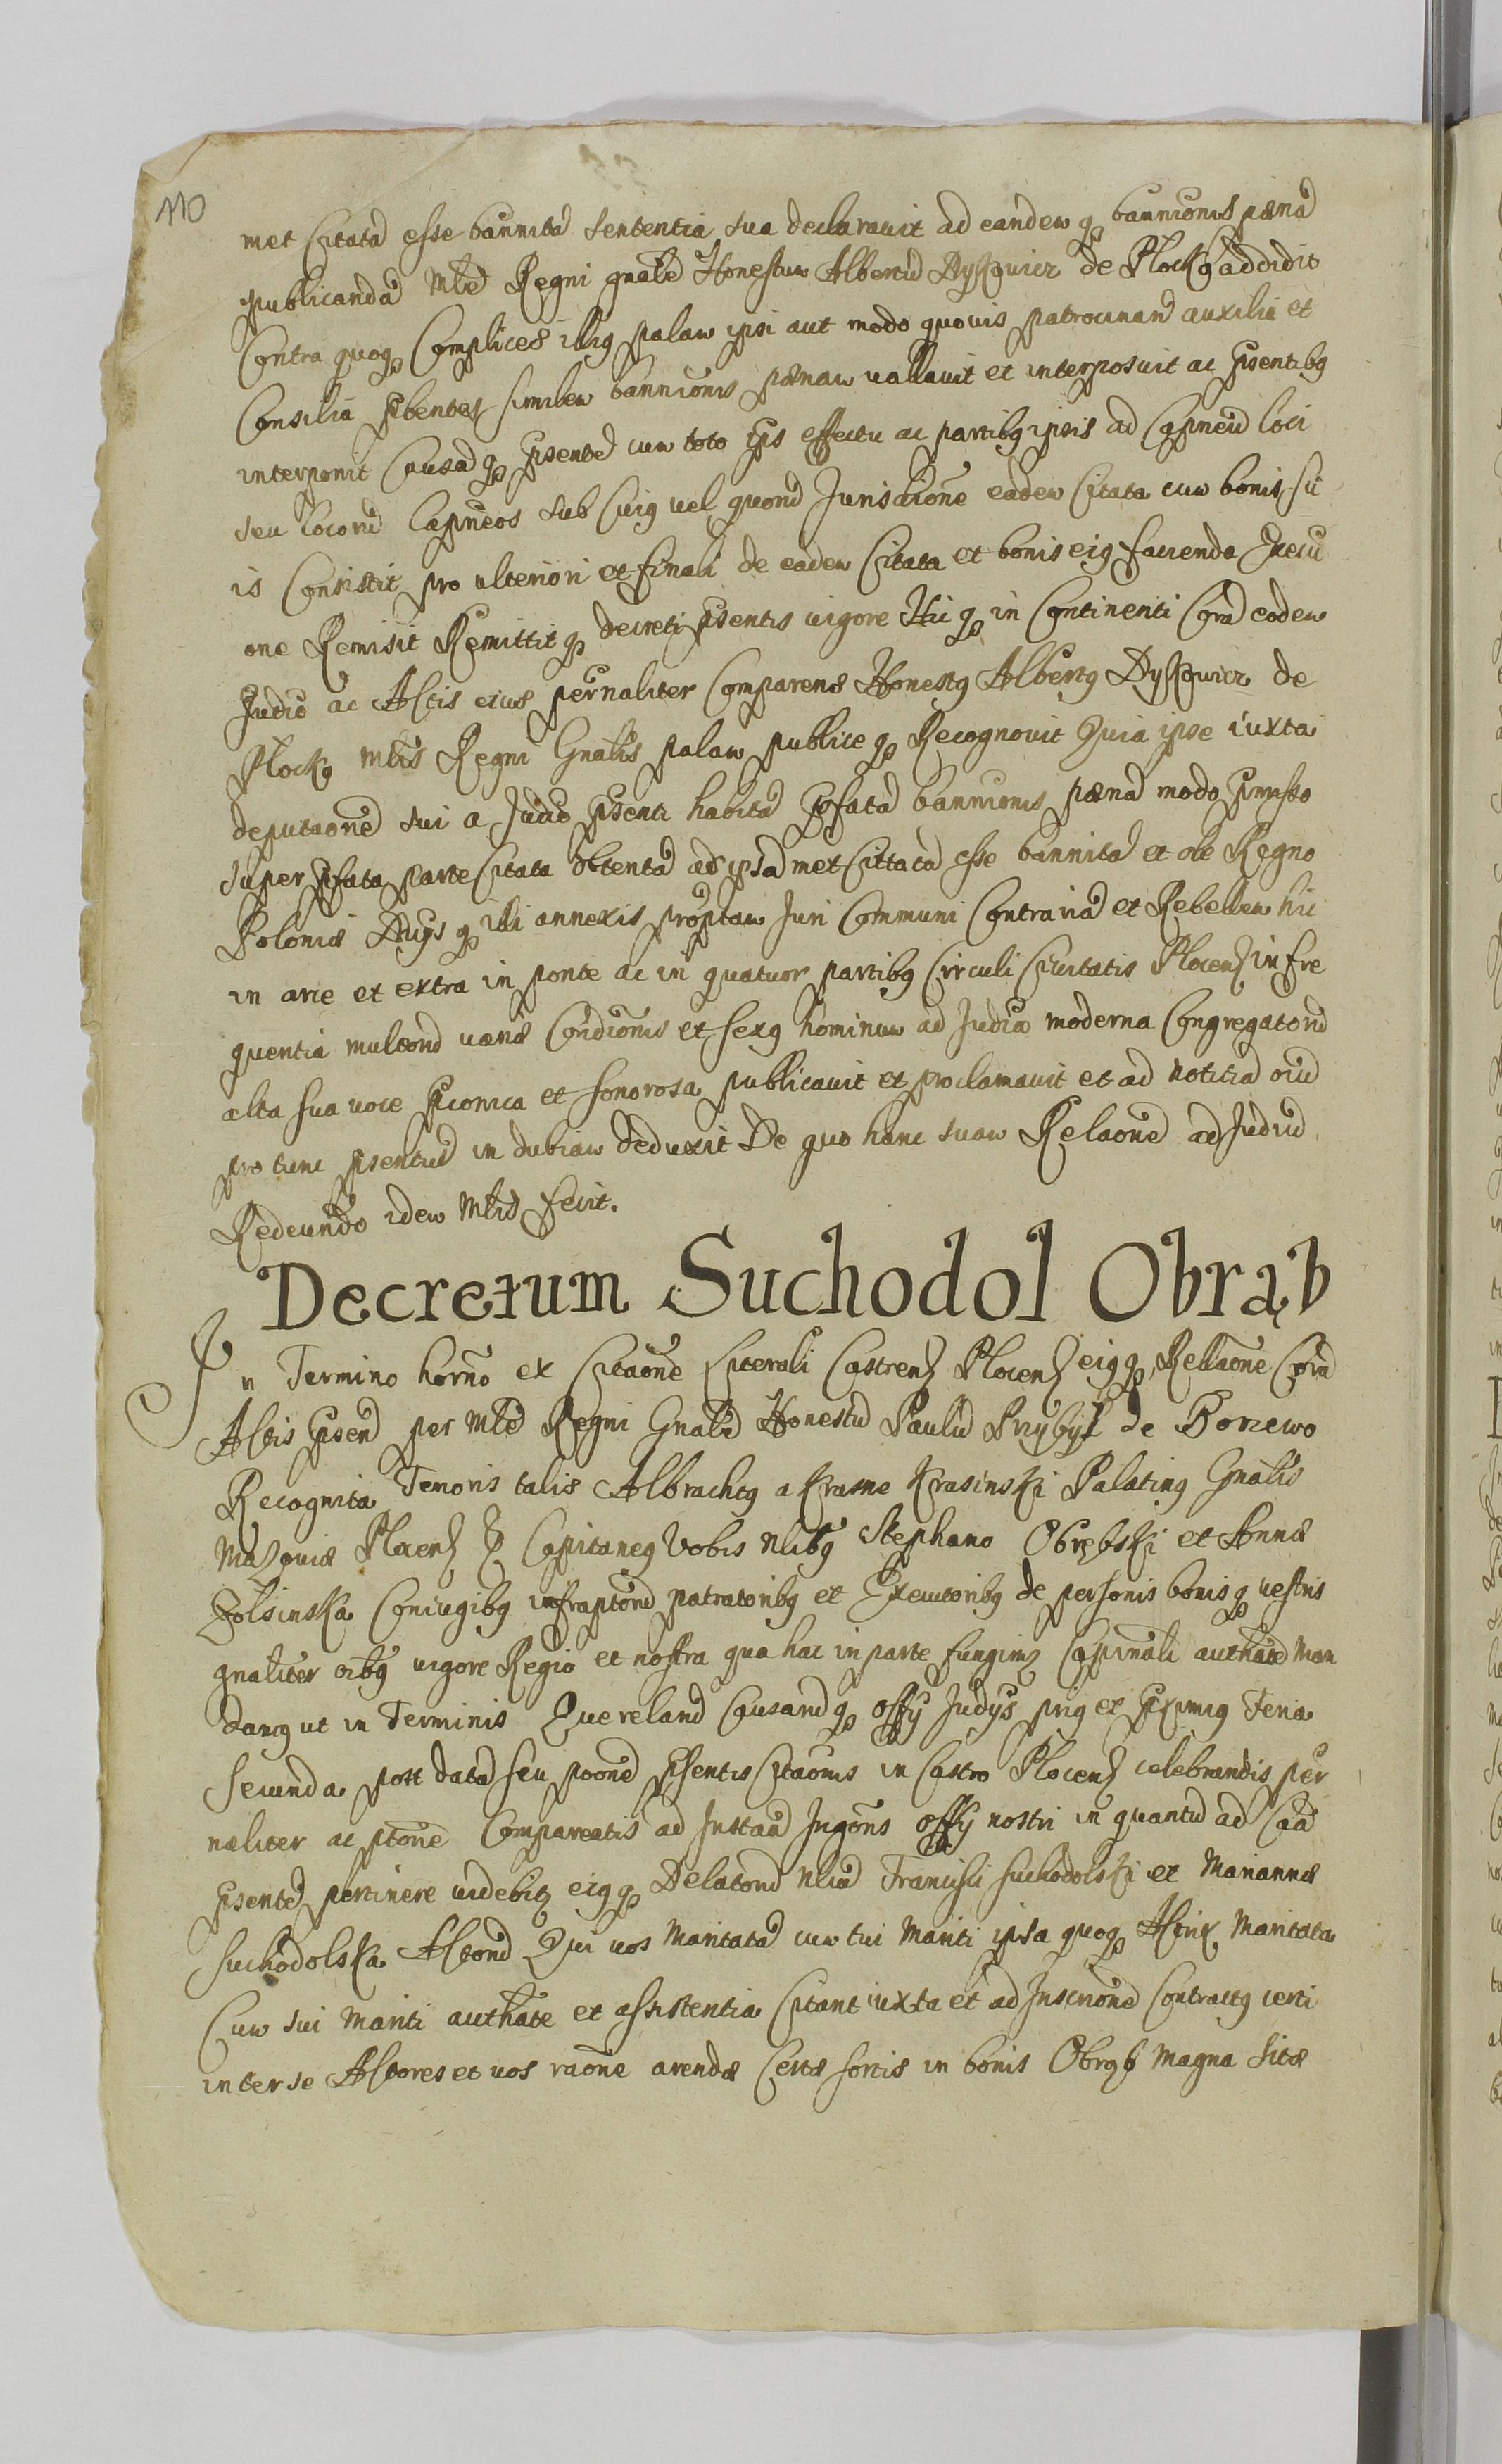 110
met Citatā esse bannitā sententia sua declarauit ad eandem q₃ bannionis pænā
publicandā Mlē Regni gnālē Honestum Albertū Dyszkuicz de Plocko addidit
Contra quoq₃ Complices illi9 palam ipsi aut modo quouis patrocinanā auxilia et
Consilia pbentes similem bannionis pænam uallauit et interposuit ac psentib9
interponit Causā q₃ psentē cum toto ips effectu ac partib9 ipsis ad Capneū loci
seu locorū Capneos sub Cui9 vel quorū Jurisdicōne eadem Citata cum bonis su
is Consistit pro ulteriori et finali de eadem Citata et bonis ei9 facienda Execu
one Remisit Remittit q₃ decreti psentis uigore Hic q₃ in Continenti Corā eodem
Judio ac Actis eius personaliter Comparens Honest9 Albert9 Dyszkuicz de
Plocko Mlis Regni Gnālis palam publice q₃ Recognouit Quia ipse iuxta
deputaonē sui a Judio psenti habitā pfatā bannionis pænā modo pmisso
super pfata parte Citata obtentā ad ipsā met Cittatā esse bannitā et ole Regno
Poloniæ Duys q₃ illi annexis proptam Juri Communi Contrariā et Rebellem hic
in arce et extra in ponte ac in quatuor partib9 Circuli Ciuitatis Plocens in fre
quentia multorū uariæ Condionis et sex9 hominum ad Judica moderna Congregatorū
alta sua uoce pconica et sonorosa publicauit et proclamauit et ad notitiā oiū
pro tunc psentiū in dubiam deduxit De quo hanc suam Relaonē ad Judiū
Redeundo idem Mlis fecit.
Decretum Suchodol Obrąb
In Termino horno ex Citaone Literali Castrens Plocens ei9 q₃ Rellaone Corā
Actis psenā per Mlē Regni Gnālē Honestū Paulū Przybył de Borzewo
Recognita Tenoris talis Albracht9 a Krasne Krasinski Palatin9 Gnālis
Mazouiæ Plocens Capitane9 Vobis nlib9 Stephano Obrębski et Annæ
Zolsinska Coniugib9 infraptorū patratorib9 et Executorib9 de personis bonis q₃ uestris
gnaliter oib9 uigore Regio et nostra qua hac in parte fungim9 Capinali authate Man
dam9 ut in Terminis Querelarū Causarū q₃ offy Judys pri9 et pxim9 Feria
secunda post datā seu poonē psentis Citaonis in Castro Plocens celebrandis per
naliter ac ptorie Compareatis ad Instaā Ingoris offy nostri in quantū ad Caā
psentē pertinere uidebit ei9 q₃ Delatorū nliū Francisci Suchodolski et Mariannæ
Suchodolska Actorū Qui uos Maritatā cum tui Mariti ipsa quoq₃ Actrix Maritata
Cum sui Mariti authate et assistentia Citant iuxta et ad Inscrionē Contract9 certi
inter se Actores et uos raone arendæ Certæ sortis in bonis Obrąb Magna sitæ